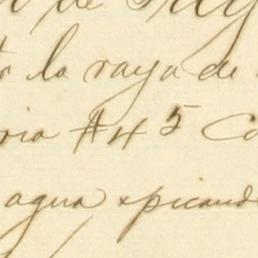 de
la raya de
ria #45 Co
agua xpicand